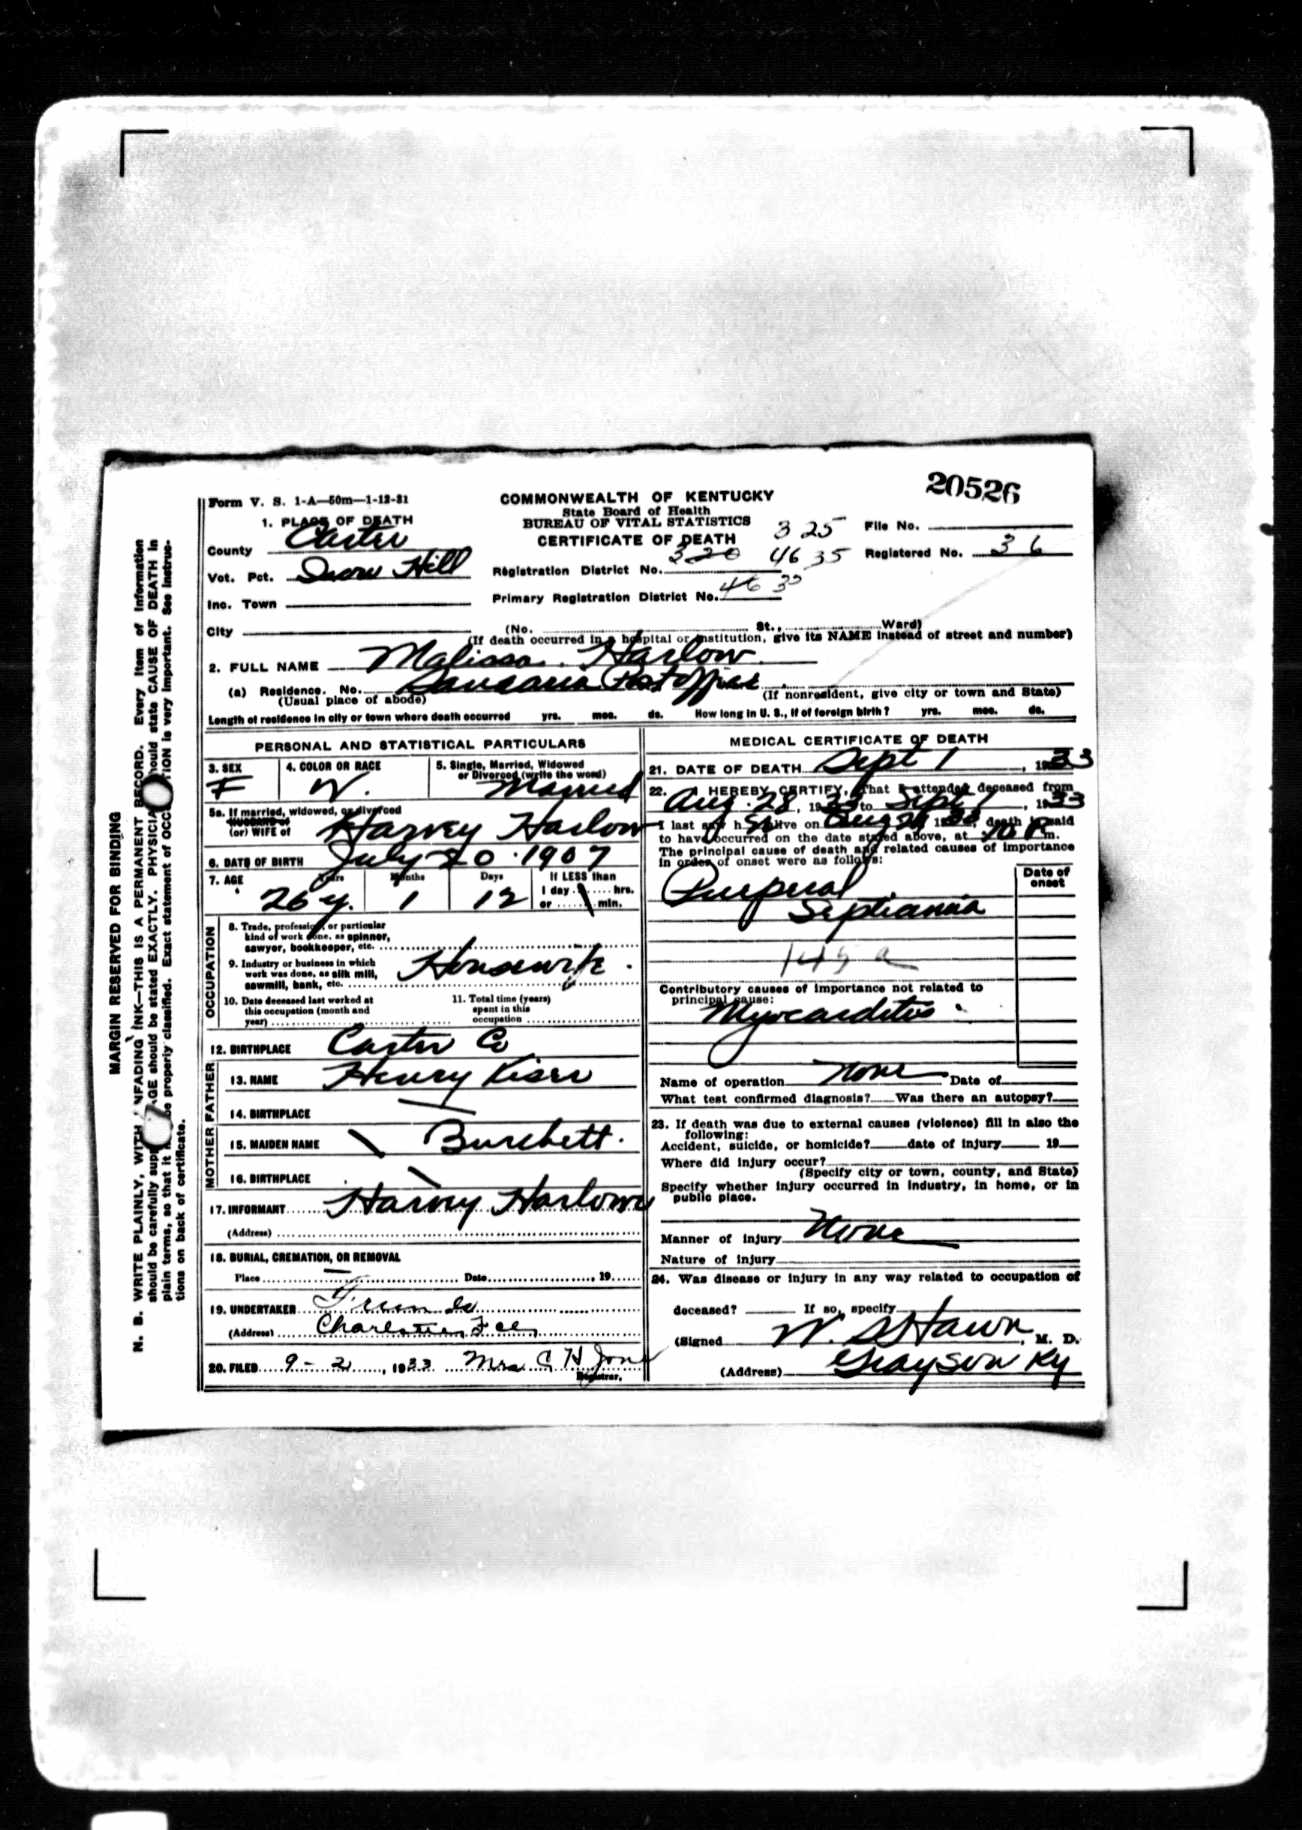 20526
Form V. S. 1-A—50m—1-12-31
COMMONWEALTH OF KENTUCKY
State Board of Health
BUREAU OF VITAL STATISTICS
CERTIFICATE OF DEATH
1. PLACE OF DEATH
County Carter
Vot. Pct. Iron Hill
Inc. Town
City
325
File No.
Registration District No. 320 4635
Registered No. 36
Primary Registration District No. 4635
(No. St., Ward)
(If death occurred in a hospital or institution, give its NAME instead of street and number)
2. FULL NAME Malissa Harlow
(a) Residence. No. Post Office
(Usual place of abode) (If nonresident, give city or town and State)
Length of residence in city or town where death occurred yrs. mos. ds. How long in U. S., if of foreign birth? yrs. mos. ds.
PERSONAL AND STATISTICAL PARTICULARS
3. SEX F
4. COLOR OR RACE W.
5. Single, Married, Widowed
or Divorced (write the word)
Married
5a. If married, widowed, or divorced
HUSBAND of
(or) WIFE of Harvey Harlow
6. DATE OF BIRTH July 20 1907
7. AGE Years Months Days If LESS than
1 day ...... hrs.
or ...... min.
26 y. 1 12
OCCUPATION
8. Trade, profession, or particular
kind of work done, as spinner,
sawyer, bookkeeper, etc.
9. Industry or business in which
work was done, as silk mill,
sawmill, bank, etc.
Housewife.
10. Date deceased last worked at
this occupation (month and
year)
11. Total time (years)
spent in this
occupation
12. BIRTHPLACE Carter Co
FATHER
13. NAME Henry Kiser
14. BIRTHPLACE
MOTHER
15. MAIDEN NAME Burchett.
16. BIRTHPLACE
17. INFORMANT Harvey Harlow
(Address)
18. BURIAL, CREMATION, OR REMOVAL
Place Date 19
19. UNDERTAKER
(Address)
20. FILED 9-2, 1933 Mrs C H Jones
Registrar.
MEDICAL CERTIFICATE OF DEATH
21. DATE OF DEATH Sept 1, 1933
22. I HEREBY CERTIFY, That I attended deceased from
Aug. 28, 1933 to Sept 1, 1933
I last saw h alive on Aug 1933, death is said
to have occurred on the date stated above, at 10 P m.
The principal cause of death and related causes of importance
in order of onset were as follows:
Date of
onset
Purperal
Septicamia
Contributory causes of importance not related to
principal cause:
Myocarditis
Name of operation None Date of
What test confirmed diagnosis? Was there an autopsy?
23. If death was due to external causes (violence) fill in also the
following:
Accident, suicide, or homicide? date of injury 19
Where did injury occur?
(Specify city or town, county, and State)
Specify whether injury occurred in industry, in home, or in
public place.
Manner of injury None
Nature of injury
24. Was disease or injury in any way related to occupation of
deceased? If so, specify
(Signed W. , M. D.
(Address) Grayson Ky
MARGIN RESERVED FOR BINDING
N. B. WRITE PLAINLY, WITH UNFADING INK—THIS IS A PERMANENT RECORD. Every item of information
should be carefully supplied. AGE should be stated EXACTLY. PHYSICIANS should state CAUSE OF DEATH in
plain terms, so that it be properly classified. Exact statement of OCCUPATION is very important. See instruc-
tions on back of certificate.